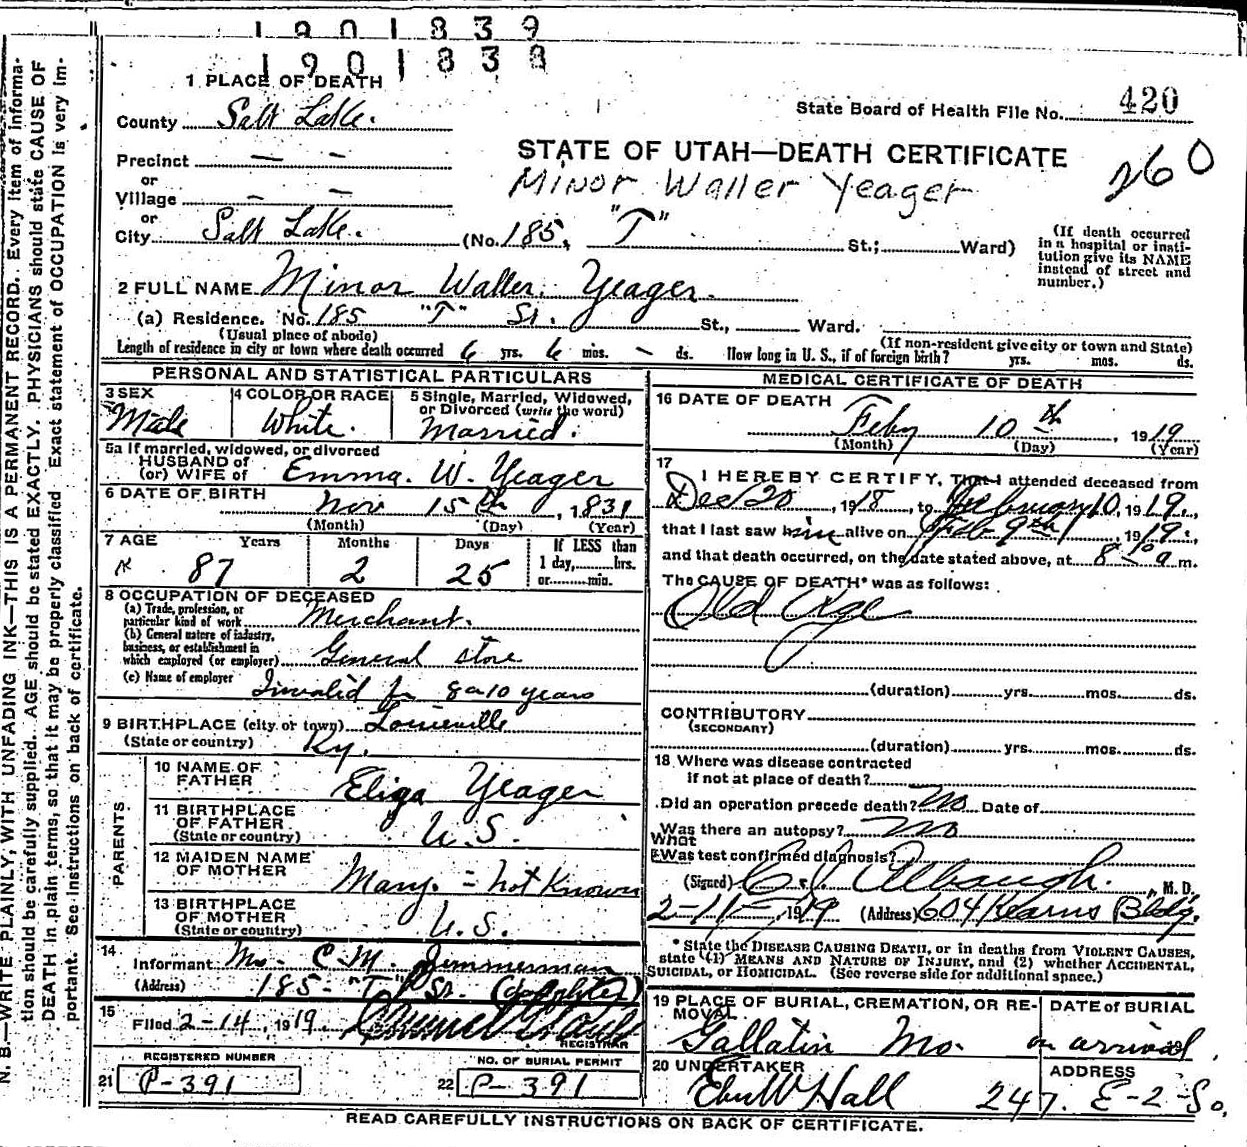 1901839
1901838
1 PLACE OF DEATH
State Board of Health File No. 420
County Salt Lake.
STATE OF UTAH—DEATH CERTIFICATE
260
Precinct — -
or
Minor Waller Yeager
Village - —
or
City Salt Lake. (No. 185, "T" St.; Ward)
(If death occurred in a hospital or institution give its NAME instead of street and number.)
2 FULL NAME Minor Waller Yeager.
(a) Residence. No. 185 "T" St. St., Ward.
(Usual place of abode) (If non-resident give city or town and State)
Length of residence in city or town where death occurred 6 yrs. 6 mos. - ds. How long in U. S., if of foreign birth? yrs. mos. ds.
PERSONAL AND STATISTICAL PARTICULARS
3 SEX Male
4 COLOR OR RACE White.
5 Single, Married, Widowed, or Divorced (write the word) Married.
5a If married, widowed, or divorced
HUSBAND of
(or) WIFE of Emma. W. Yeager
6 DATE OF BIRTH Nov 15th, 1831
(Month) (Day) (Year)
7 AGE Years Months Days If LESS than
1 day, hrs.
87 2 25 or min.
8 OCCUPATION OF DECEASED
(a) Trade, profession, or
particular kind of work Merchant.
(b) General nature of industry,
business, or establishment in
which employed (or employer) General store
(c) Name of employer
Invalid for 8 or 10 years
9 BIRTHPLACE (city or town) Louieville
(State or country) Ky.
PARENTS
10 NAME OF
FATHER Eliga Yeager
11 BIRTHPLACE
OF FATHER
(State or country) U.S.
12 MAIDEN NAME
OF MOTHER Mary. = not Known
13 BIRTHPLACE
OF MOTHER
(State or country) U.S.
14
Informant Mrs. C. M. Zimmerman
(Address) 185 - "T" St. (daughter)
15
Filed 2-14, 1919.
REGISTRAR
REGISTERED NUMBER
21 P-391
NO. OF BURIAL PERMIT
22 P-391
MEDICAL CERTIFICATE OF DEATH
16 DATE OF DEATH
Feby 10th, 1919
(Month) (Day) (Year)
17
I HEREBY CERTIFY, That I attended deceased from
Dec 20, 1918, to February 10, 1919.,
that I last saw him alive on Feb 9th, 1919.,
and that death occurred, on the date stated above, at 8 10 a m.
The CAUSE OF DEATH* was as follows:
Old Age
(duration) yrs. mos. ds.
CONTRIBUTORY
(SECONDARY)
(duration) yrs. mos. ds.
18 Where was disease contracted
if not at place of death?
Did an operation precede death? No Date of
Was there an autopsy? No
What
Was test confirmed diagnosis?
(Signed) C. J. Albaugh. , M. D.
2-11-, 1919 (Address) 604 Kearns Bldg.
* State the DISEASE CAUSING DEATH, or in deaths from VIOLENT CAUSES,
state (1) MEANS AND NATURE OF INJURY, and (2) whether ACCIDENTAL,
SUICIDAL, or HOMICIDAL. (See reverse side for additional space.)
19 PLACE OF BURIAL, CREMATION, OR REMOVAL.
Gallatin Mo.
DATE of BURIAL
on arrival
20 UNDERTAKER
Eber W Hall
ADDRESS
247. E-2-So.
READ CAREFULLY INSTRUCTIONS ON BACK OF CERTIFICATE.
N. B.—WRITE PLAINLY, WITH UNFADING INK—THIS IS A PERMANENT RECORD. Every item of information should be carefully supplied. AGE should be stated EXACTLY. PHYSICIANS should state CAUSE OF DEATH in plain terms, so that it may be properly classified. Exact statement of OCCUPATION is very important. See instructions on back of certificate.